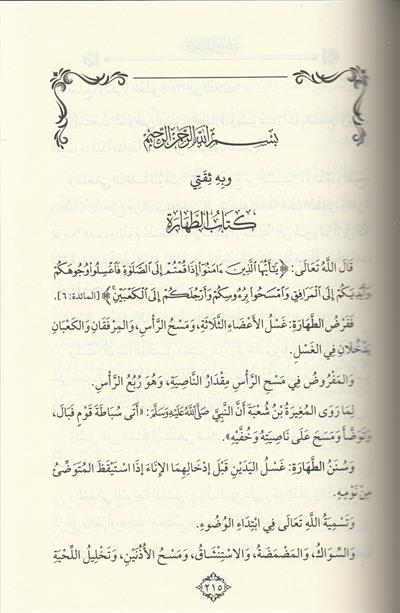 بِسْمِ اللهِ الرَّحْمٰنِ الرَّحِيمِ
وبِهِ ثِقَتِي
كِتَابُ الطَّهَارَةِ
قَالَ اللهُ تَعَالَى: ﴿يَٰٓأَيُّهَا ٱلَّذِينَ ءَامَنُوٓاْ إِذَا قُمۡتُمۡ إِلَى ٱلصَّلَوٰةِ فَٱغۡسِلُواْ وُجُوهَكُمۡ
وَأَيۡدِيَكُمۡ إِلَى ٱلۡمَرَافِقِ وَٱمۡسَحُواْ بِرُءُوسِكُمۡ وَأَرۡجُلَكُمۡ إِلَى ٱلۡكَعۡبَيۡنِ﴾ [المائدة: ٦].
فَفَرْضُ الطَّهَارَةِ: غَسْلُ الأَعْضَاءِ الثَّلَاثَةِ، وَمَسْحُ الرَّأْسِ، وَالمِرْفَقَانِ وَالكَعْبَانِ
يَدْخُلَانِ فِي الغَسْلِ.
وَالمَفْرُوضُ فِي مَسْحِ الرَّأْسِ مِقْدَارُ النَّاصِيَةِ، وَهُوَ رُبُعُ الرَّأْسِ.
لِمَا رَوَى المُغِيرَةُ بْنُ شُعْبَةَ أَنَّ النَّبِيَّ صَلَّى اللهُ عَلَيْهِ وَسَلَّمَ: «أَتَى سُبَاطَةَ قَوْمٍ فَبَالَ،
وَتَوَضَّأَ وَمَسَحَ عَلَى نَاصِيَتِهِ وَخُفَّيْهِ».
وَسُنَنُ الطَّهَارَةِ: غَسْلُ اليَدَيْنِ قَبْلَ إِدْخَالِهِمَا الإِنَاءَ إِذَا اسْتَيْقَظَ المُتَوَضِّئُ
مِنْ نَوْمِهِ.
وَتَسْمِيَةُ اللهِ تَعَالَى فِي ابْتِدَاءِ الوُضُوءِ.
وَالسِّوَاكُ، وَالمَضْمَضَةُ، وَالاسْتِنْشَاقُ، وَمَسْحُ الأُذُنَيْنِ، وَتَخْلِيلُ اللِّحْيَةِ
٢١٥